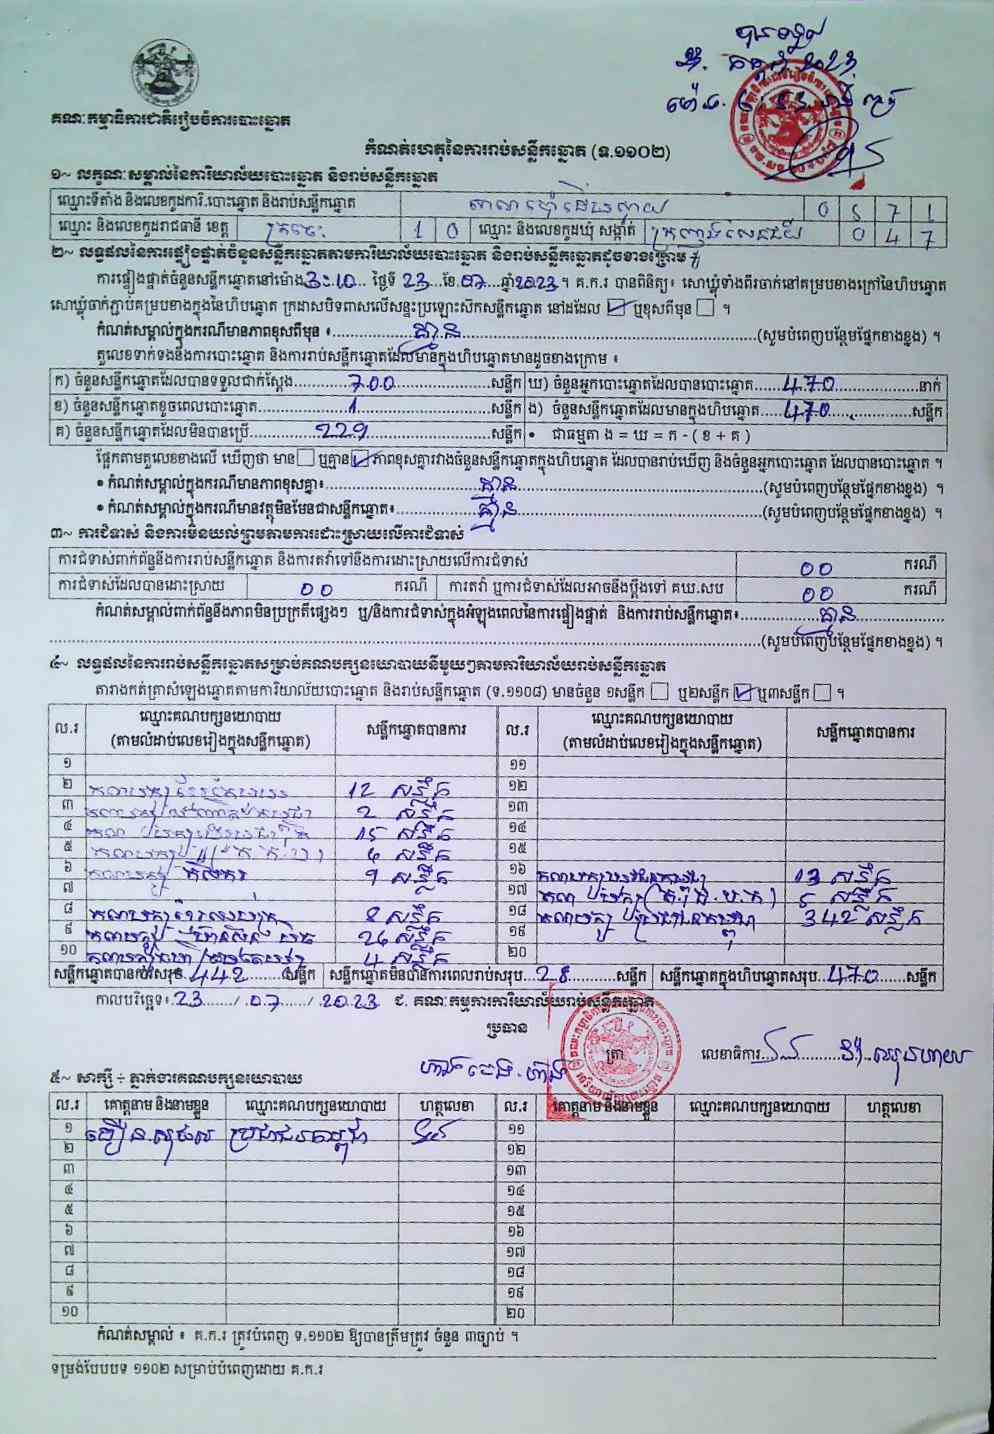 បានទទួល
គណៈកម្មាធិការជាតិរៀបចំការបោះឆ្នោត
កំណត់ហេតុនៃការរាប់សន្លឹកឆ្នោត (ទ.១១០២)
១~ លក្ខណៈសម្គាល់នៃការិយាល័យបោះឆ្នោត និងរាប់សន្លឹកឆ្នោត
ឈ្មោះទីតាំង និងលេខកូដការិ.បោះឆ្នោត និងរាប់សន្លឹកឆ្នោត 0571
ឈ្មោះ និងលេខកូដរាជធានី ខេត្ត ក្រចេះ 10 ឈ្មោះ និងលេខកូដឃុំ សង្កាត់ 047
២~ លទ្ធផលនៃការផ្ទៀងផ្ទាត់ចំនួនសន្លឹកឆ្នោតតាមការិយាល័យបោះឆ្នោត និងរាប់សន្លឹកឆ្នោតដូចខាងក្រោម ៖
ការផ្ទៀងផ្ទាត់ចំនួនសន្លឹកឆ្នោតនៅម៉ោង 3:10 ថ្ងៃទី 23 ខែ 07 ឆ្នាំ 2023 ។ គ.ក.រ បានពិនិត្យ៖ សោឃ្លុំទាំងពីរចាក់នៅគម្របខាងក្រៅនៃហិបឆ្នោត
សោឃ្លុំចាក់ភ្ជាប់គម្របខាងក្នុងនៃហិបឆ្នោត ក្រដាសបិទពាសលើសន្ទះប្រឡោះសិកសន្លឹកឆ្នោត នៅដដែល ☑ ឬខុសពីមុន ☐ ។
កំណត់សម្គាល់ក្នុងករណីមានភាពខុសពីមុន ៖ គ្មាន (សូមបំពេញបន្ថែមផ្នែកខាងខ្នង) ។
តួលេខទាក់ទងនឹងការបោះឆ្នោត និងការរាប់សន្លឹកឆ្នោតដែលមានក្នុងហិបឆ្នោតមានដូចខាងក្រោម ៖
ក) ចំនួនសន្លឹកឆ្នោតដែលបានទទួលជាក់ស្តែង 700 សន្លឹក ឃ) ចំនួនអ្នកបោះឆ្នោតដែលបានបោះឆ្នោត 470 នាក់
ខ) ចំនួនសន្លឹកឆ្នោតខូចពេលបោះឆ្នោត 1 សន្លឹក ង) ចំនួនសន្លឹកឆ្នោតដែលមានក្នុងហិបឆ្នោត 470 សន្លឹក
គ) ចំនួនសន្លឹកឆ្នោតដែលមិនបានប្រើ 229 សន្លឹក • ជាធម្មតា ង = ឃ = ក - ( ខ + គ )
ផ្អែកតាមតួលេខខាងលើ ឃើញថា មាន ☐ ឬគ្មាន ☑ ភាពខុសគ្នារវាងចំនួនសន្លឹកឆ្នោតក្នុងហិបឆ្នោត ដែលបានរាប់ឃើញ និងចំនួនអ្នកបោះឆ្នោត ដែលបានបោះឆ្នោត ។
• កំណត់សម្គាល់ក្នុងករណីមានភាពខុសគ្នា៖ គ្មាន (សូមបំពេញបន្ថែមផ្នែកខាងខ្នង) ។
• កំណត់សម្គាល់ក្នុងករណីមានវត្ថុមិនមែនជាសន្លឹកឆ្នោត៖ គ្មាន (សូមបំពេញបន្ថែមផ្នែកខាងខ្នង) ។
៣~ ការជំទាស់ និងការមិនយល់ព្រមតាមការដោះស្រាយលើការជំទាស់
ការជំទាស់ពាក់ព័ន្ធនឹងការរាប់សន្លឹកឆ្នោត និងការតវ៉ាទៅនឹងការដោះស្រាយលើការជំទាស់ 00 ករណី
ការជំទាស់ដែលបានដោះស្រាយ 00 ករណី ការតវ៉ា ឬការជំទាស់ដែលអាចនឹងប្តឹងទៅ គឃ.សប 00 ករណី
កំណត់សម្គាល់ពាក់ព័ន្ធនឹងភាពមិនប្រក្រតីផ្សេងៗ ឬ/និងការជំទាស់ក្នុងអំឡុងពេលនៃការផ្ទៀងផ្ទាត់ និងការរាប់សន្លឹកឆ្នោត៖ គ្មាន
(សូមបំពេញបន្ថែមផ្នែកខាងខ្នង) ។
៤~ លទ្ធផលនៃការរាប់សន្លឹកឆ្នោតសម្រាប់គណបក្សនយោបាយនីមួយៗតាមការិយាល័យរាប់សន្លឹកឆ្នោត
តារាងកត់ត្រាសំឡេងឆ្នោតតាមការិយាល័យបោះឆ្នោត និងរាប់សន្លឹកឆ្នោត (ទ.១១០៨) មានចំនួន ១សន្លឹក ☐ ឬ២សន្លឹក ☑ ឬ៣សន្លឹក ☐ ។
ល.រ ឈ្មោះគណបក្សនយោបាយ (តាមលំដាប់លេខរៀងក្នុងសន្លឹកឆ្នោត) សន្លឹកឆ្នោតបានការ ល.រ ឈ្មោះគណបក្សនយោបាយ (តាមលំដាប់លេខរៀងក្នុងសន្លឹកឆ្នោត) សន្លឹកឆ្នោតបានការ
១ ១១
២ គណបក្ស 12 សន្លឹក ១២
៣ 2 សន្លឹក ១៣
៤ គណបក្ស 15 សន្លឹក ១៤
៥ គណបក្ស 4 សន្លឹក ១៥
៦ គណបក្ស កសិករ 9 សន្លឹក ១៦ គណបក្ស 13 សន្លឹក
៧ ១៧ គណបក្ស 5 សន្លឹក
៨ គណបក្ស 2 សន្លឹក ១៨ គណបក្ស ប្រជាជនកម្ពុជា 342 សន្លឹក
៩ គណបក្ស ហ៊្វុនស៊ិនប៉ិច 26 សន្លឹក ១៩
១០ 4 សន្លឹក ២០
សន្លឹកឆ្នោតបានការសរុប 442 សន្លឹក សន្លឹកឆ្នោតមិនបានការពេលរាប់សរុប 28 សន្លឹក សន្លឹកឆ្នោតក្នុងហិបឆ្នោតសរុប 470 សន្លឹក
កាលបរិច្ឆេទ៖ 23 / 07 / 2023 ជ. គណៈកម្មការការិយាល័យរាប់សន្លឹកឆ្នោត
ប្រធាន
ត្រា លេខាធិការ
៥~ សាក្សី ÷ ភ្នាក់ងារគណបក្សនយោបាយ
ល.រ គោត្តនាម និងនាមខ្លួន ឈ្មោះគណបក្សនយោបាយ ហត្ថលេខា ល.រ គោត្តនាម និងនាមខ្លួន ឈ្មោះគណបក្សនយោបាយ ហត្ថលេខា
១ ប្រជាជនកម្ពុជា ១១
២ ១២
៣ ១៣
៤ ១៤
៥ ១៥
៦ ១៦
៧ ១៧
៨ ១៨
៩ ១៩
១០ ២០
កំណត់សម្គាល់ ៖ គ.ក.រ ត្រូវបំពេញ ទ.១១០២ ឱ្យបានត្រឹមត្រូវ ចំនួន ៣ច្បាប់ ។
ទម្រង់បែបបទ ១១០២ សម្រាប់បំពេញដោយ គ.ក.រ